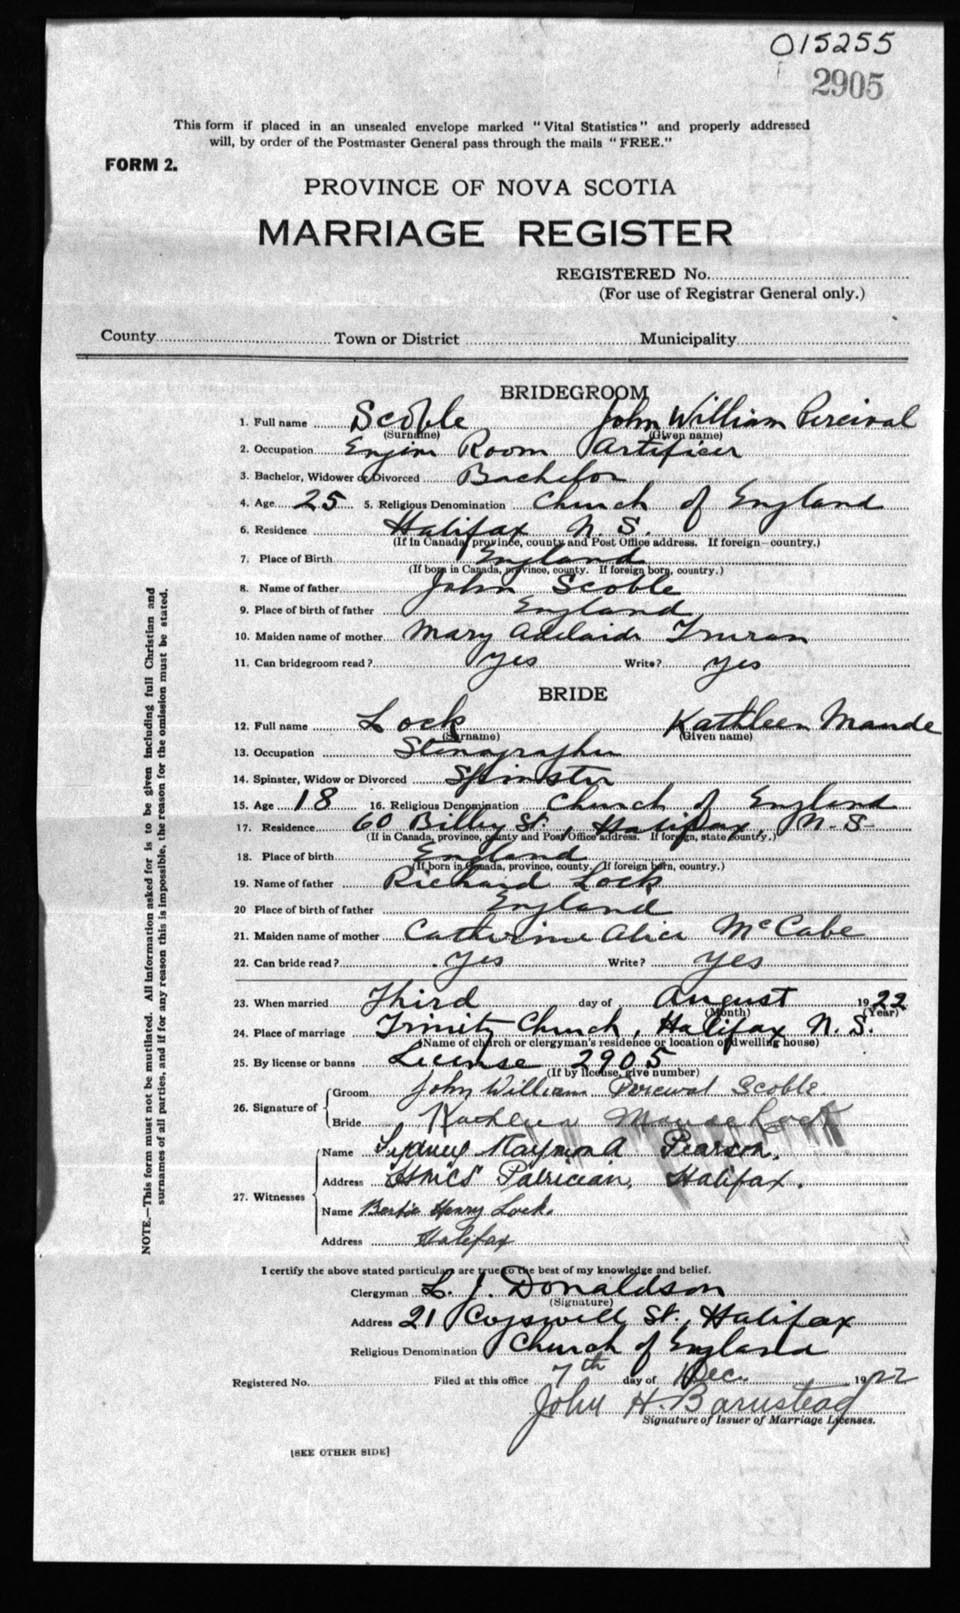 015255
2905
This form if placed in an unsealed envelope marked "Vital Statistics" and properly addressed
will, by order of the Postmaster General pass through the mails "FREE."
FORM 2.
PROVINCE OF NOVA SCOTIA
MARRIAGE REGISTER
REGISTERED No.
(For use of Registrar General only.)
County Town or District Municipality
BRIDEGROOM
1. Full name Scoble John William Percival
(Surname) (Given name)
2. Occupation Engine Room Artificer
3. Bachelor, Widower or Divorced Bachelor
4. Age 25 5. Religious Denomination Church of England
6. Residence Halifax N.S.
(If in Canada, province, county and Post Office address. If foreign—country.)
7. Place of Birth England
(If born in Canada, province, county. If foreign born, country.)
8. Name of father John Scoble
9. Place of birth of father England
10. Maiden name of mother Mary Adelaide Truran
11. Can bridegroom read? yes Write? yes
BRIDE
12. Full name Lock Kathleen Maude
(Surname) (Given name)
13. Occupation Stenographer
14. Spinster, Widow or Divorced Spinster
15. Age 18 16. Religious Denomination Church of England
17. Residence 60 Bilby St., Halifax, N.S.
(If in Canada, province, county and Post Office address. If foreign, state country.)
18. Place of birth England
(If born in Canada, province, county. If foreign born, country.)
19. Name of father Richard Lock
20 Place of birth of father England
21. Maiden name of mother Catherine Alice McCabe
22. Can bride read? yes Write? yes
23. When married Third day of August 1922
(Month) (Year)
24. Place of marriage Trinity Church, Halifax N.S.
(Name of church or clergyman's residence or location of dwelling house)
25. By license or banns License 2905
(If by license, give number)
26. Signature of Groom John William Percival Scoble.
Bride Kathleen Maude Lock
27. Witnesses Name Sydney Raymond Pearson.
Address HMCS Patrician, Halifax.
Name Bertie Henry Lock.
Address Halifax
I certify the above stated particulars are true to the best of my knowledge and belief.
Clergyman L. J. Donaldson
(Signature)
Address 21 Cogswell St., Halifax
Religious Denomination Church of England
Registered No. Filed at this office 7th day of Dec. 1922
John H. Barnstead
Signature of Issuer of Marriage Licenses.
[SEE OTHER SIDE]
NOTE.—This form must not be mutilated. All information asked for is to be given including full Christian and
surnames of all parties, and if for any reason this is impossible, the reason for the omission must be stated.